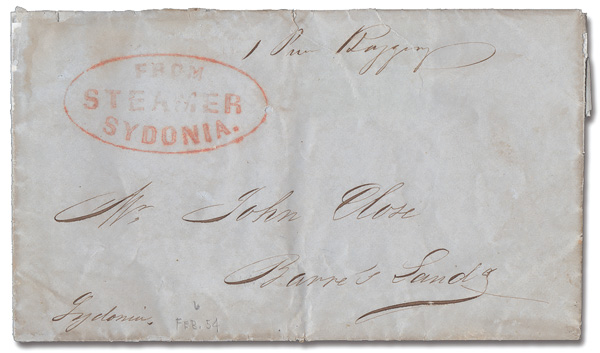 1 Pce Bagging
FROM
STEAMER
SYDONIA.
Mr John Close
Barre's Landg
Sydonia.
6
FEB. 54